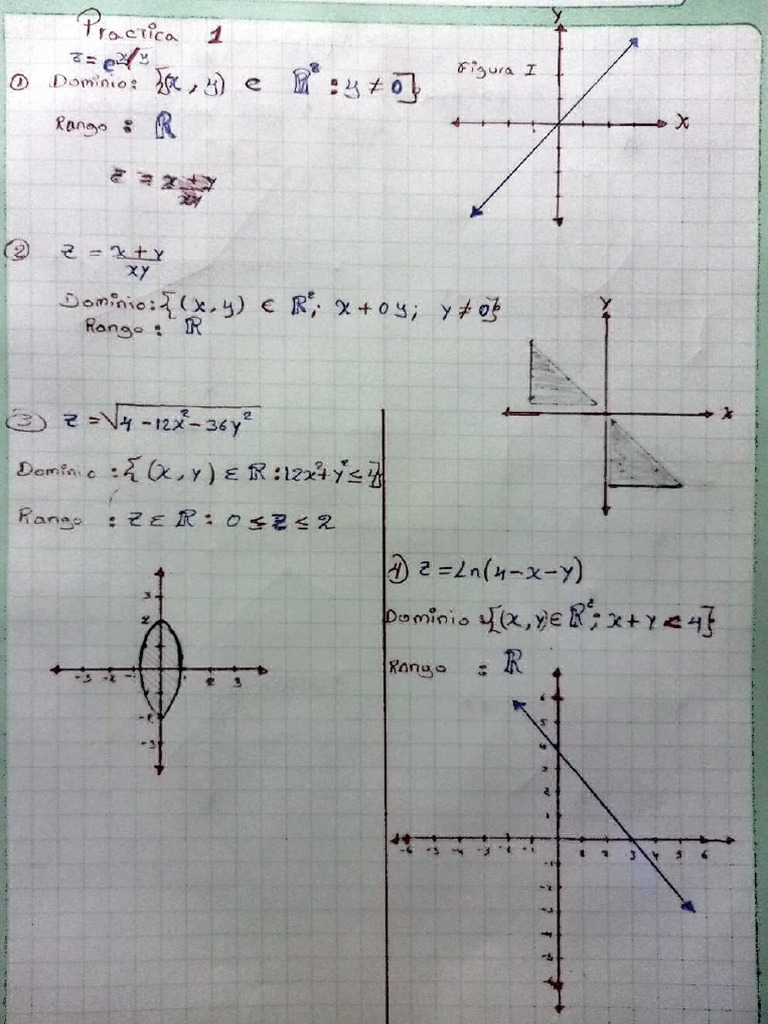 Practica 1
z = e^x/y
① Dominio: {(x, y) ∈ ℝ² : y ≠ 0}
Rango : ℝ
Figura I
Y
X
z = x + y / xy
② z = x + y / xy
Dominio: {(x, y) ∈ ℝ²; x + 0 y; y ≠ 0}
Rango : ℝ
Y
X
③ z = √4 - 12x² - 36y²
Dominio : {(x, y) ∈ ℝ : 12x² + y² ≤ 4}
Rango : z ∈ ℝ : 0 ≤ z ≤ 2
3
2
-3 -2 -1 2 3
-2
-3
④ z = Ln(4 - x - y)
Dominio : {(x, y) ∈ ℝ²; x + y < 4}
Rango : ℝ
6
5
4
3
2
1
-6 -5 -4 -3 -2 -1 1 2 3 4 5 6
-1
-2
-3
-4
-5
-6